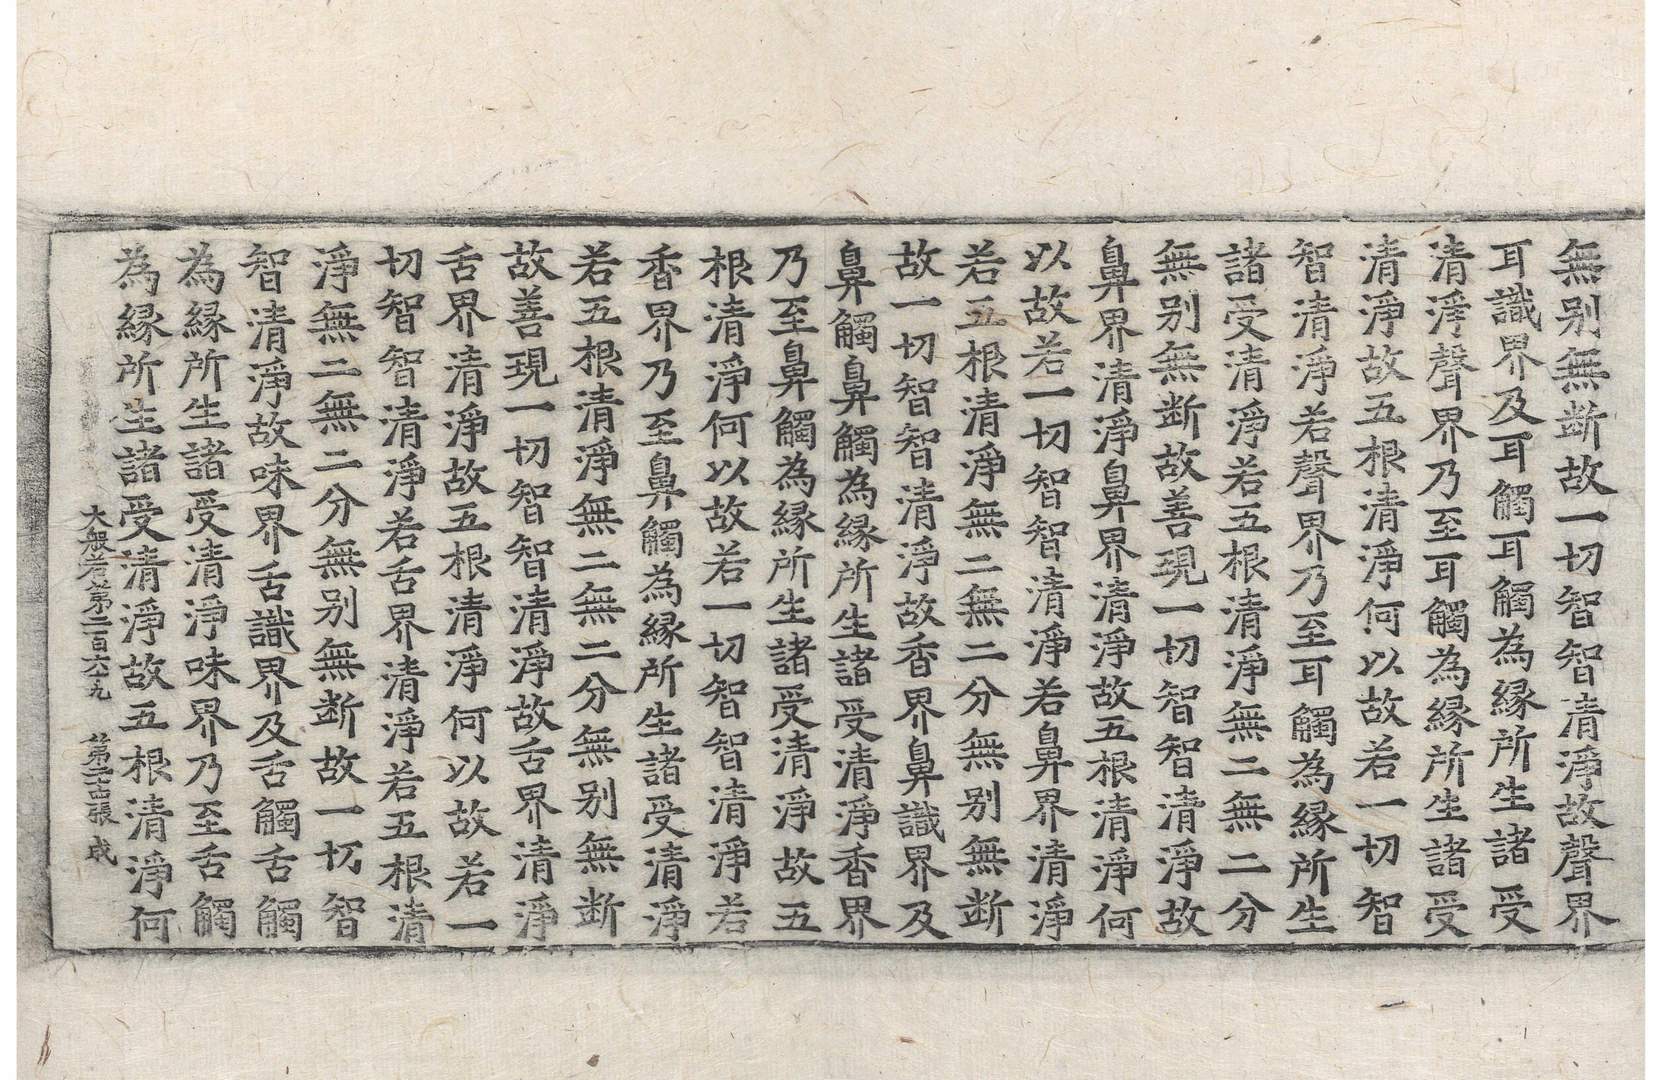 無别無断故一切智智清淨故聲界
耳識界及耳觸耳觸為縁所生諸受
清淨聲界乃至耳觸為縁所生諸受
清淨故五根清淨何以故若一切智
智清淨若聲界乃至耳觸為縁所生
諸受清淨若五根清淨無二無二分
無别無断故善現一切智智清淨故
鼻界清淨鼻界清淨故五根清淨何
以故若一切智智清淨若鼻界清淨
若五根清淨無二無二分無别無断
故一切智智清淨故香界鼻識界及
鼻觸鼻觸為縁所生諸受清淨香界
乃至鼻觸為縁所生諸受清淨故五
根清淨何以故若一切智智清淨若
香界乃至鼻觸為縁所生諸受清淨
若五根清淨無二無二分無别無断
故善現一切智智清淨故舌界清淨
舌界清淨故五根清淨何以故若一
切智智清淨若舌界清淨若五根清
淨無二無二分無别無断故一切智
智清淨故味界舌識界及舌觸舌觸
為縁所生諸受清淨味界乃至舌觸
為縁所生諸受清淨故五根清淨何
大般若第二百六十九 第張 成